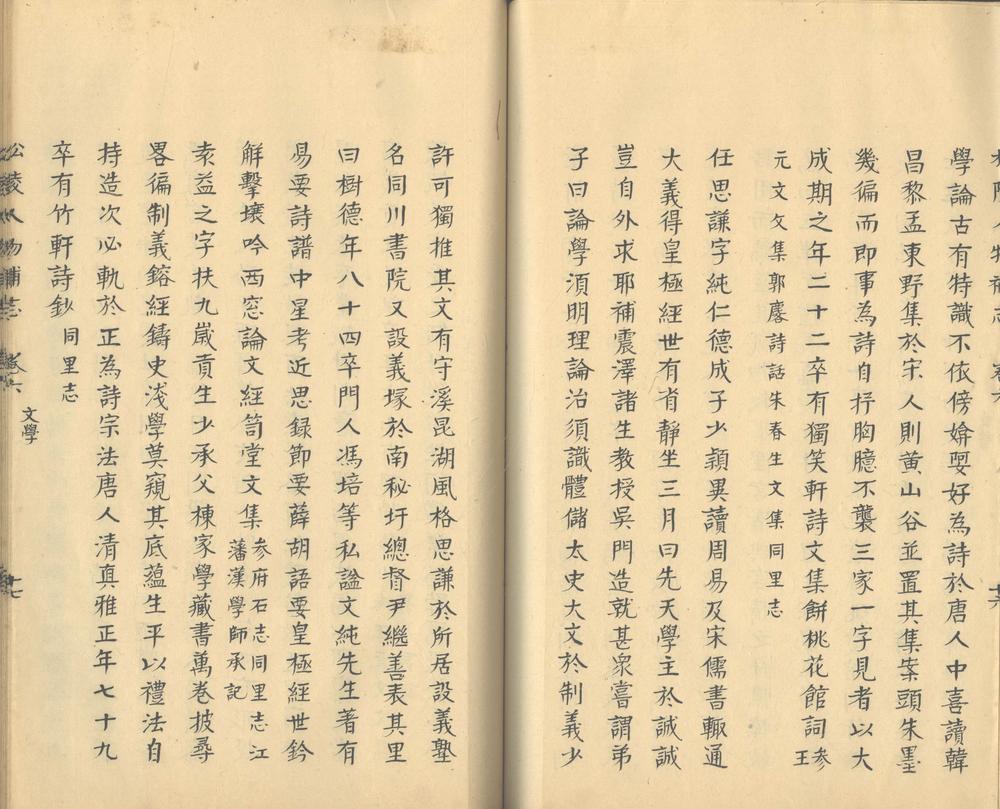 學論古有特識不依傍媕娿好為詩於唐人中喜讀韓
昌黎孟東野集於宋人則黃山谷並置其集案頭朱墨
幾徧而即事為詩自抒胸臆不襲三家一字見者以大
成期之年二十二卒有獨笑軒詩文集餅桃花館詞參王
元文文集郭麐詩話朱春生文集同里志
任思謙字純仁德成子少穎異讀周易及宋儒書輒通
大義得皇極經世有省靜坐三月曰先天學主於誠誠
豈自外求耶補震澤諸生教授吳門造就甚眾嘗謂弟
子曰論學須明理論治須識體儲太史大文於制義少
許可獨推其文有守溪昆湖風格思謙於所居設義塾
名同川書院又設義塚於南秘圩總督尹繼善表其里
曰樹德年八十四卒門人馮培等私謚文純先生著有
易要詩譜中星考近思録節要薛胡語要皇極經世鈐
解擊壤吟西窓論文經笥堂文集參府石志同里志江
藩漢學師承記
袁益之字扶九歲貢生少承父棟家學藏書萬卷披尋
畧徧制義鎔經鑄史淺學莫窺其底蘊生平以禮法自
持造次必軌於正為詩宗法唐人清真雅正年七十九
卒有竹軒詩鈔同里志
文學